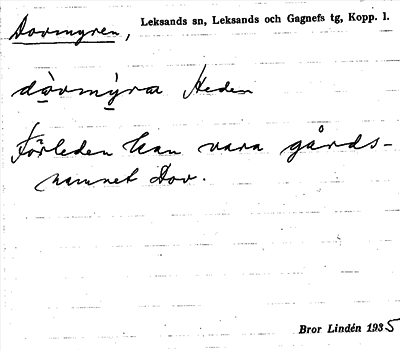 Dovmyren, Leksands sn, Leksands och Gagnefs tg, Kopp. l.
dòvmỳra Heden
Förleden kan vara gårds-
namnet Dov.
Bror Lindén 1935